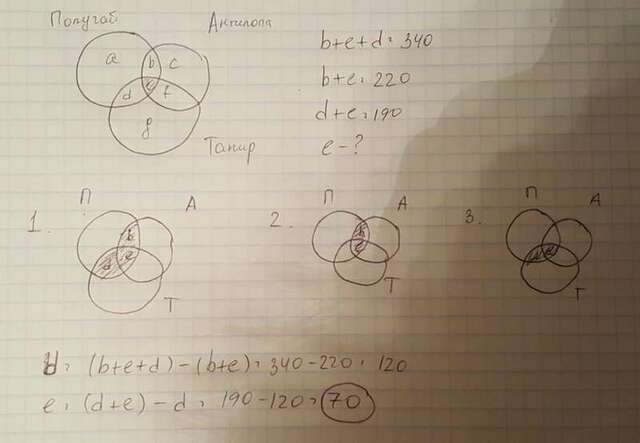 Попугай Антилопа
a b c
d e f
g
Тапир
b+e+d=340
b+e=220
d+e=190
e-?
1. П А
b
d e
Т
2. П А
b
e
Т
3. П А
d e
Т
d= (b+e+d)-(b+e)=340-220=120
e= (d+e)-d=190-120=70